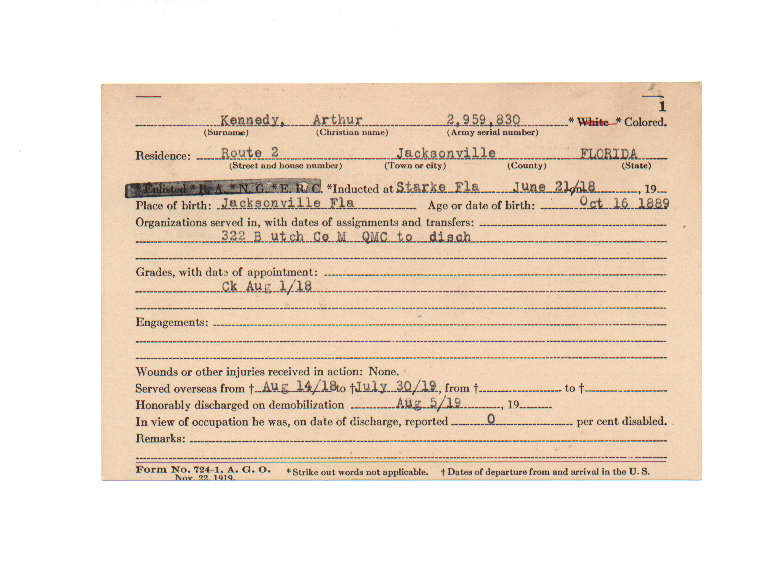 1
Kennedy, Arthur 2,959,830 * White * Colored.
(Surname) (Christian name) (Army serial number)
Residence: Route 2 Jacksonville FLORIDA
(Street and house number) (Town or city) (County) (State)
Enlisted * R. A. * N. G. * E. R. C. *Inducted at Starke Fla June 21/18, 19
Place of birth: Jacksonville Fla Age or date of birth: Oct 16 1889
Organizations served in, with dates of assignments and transfers:
322 B utch Co M QMC to disch
Grades, with date of appointment:
Ck Aug 1/18
Engagements:
Wounds or other injuries received in action: None.
Served overseas from † Aug 14/18 to † July 30/19, from † to †
Honorably discharged on demobilization Aug 5/19, 19
In view of occupation he was, on date of discharge, reported 0 per cent disabled.
Remarks:
Form No. 724-1, A. G. O. *Strike out words not applicable. † Dates of departure from and arrival in the U. S.
Nov. 22, 1919.